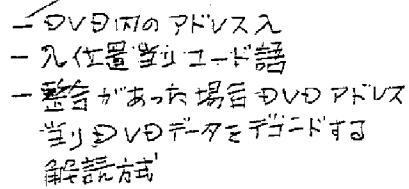 - DVD内のアドレス入
- 入位置当りコード語
- 整合があった場合DVDアドレス
当りDVDデータをデコードする
解読方式